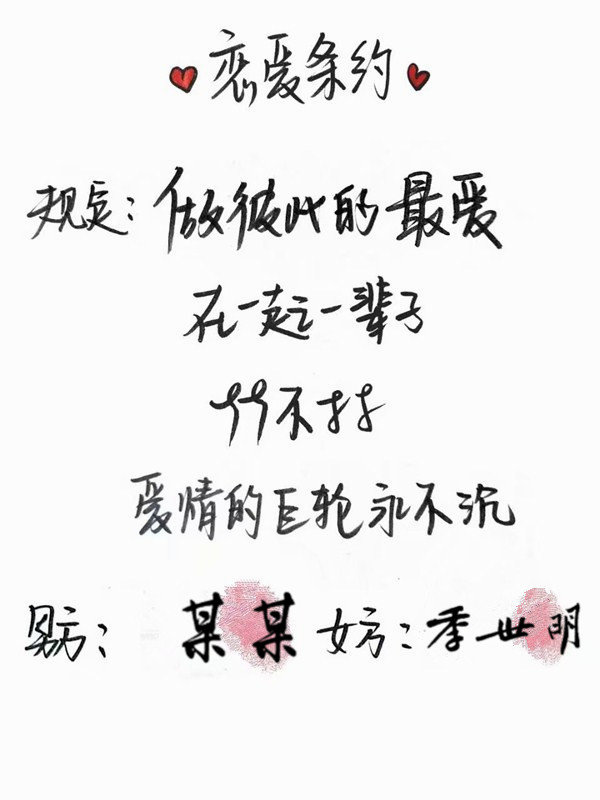 恋爱条约
规定：做彼此的最爱
在一起一辈子
不
爱情的巨轮永不沉
男方： 某某 女方：季世明